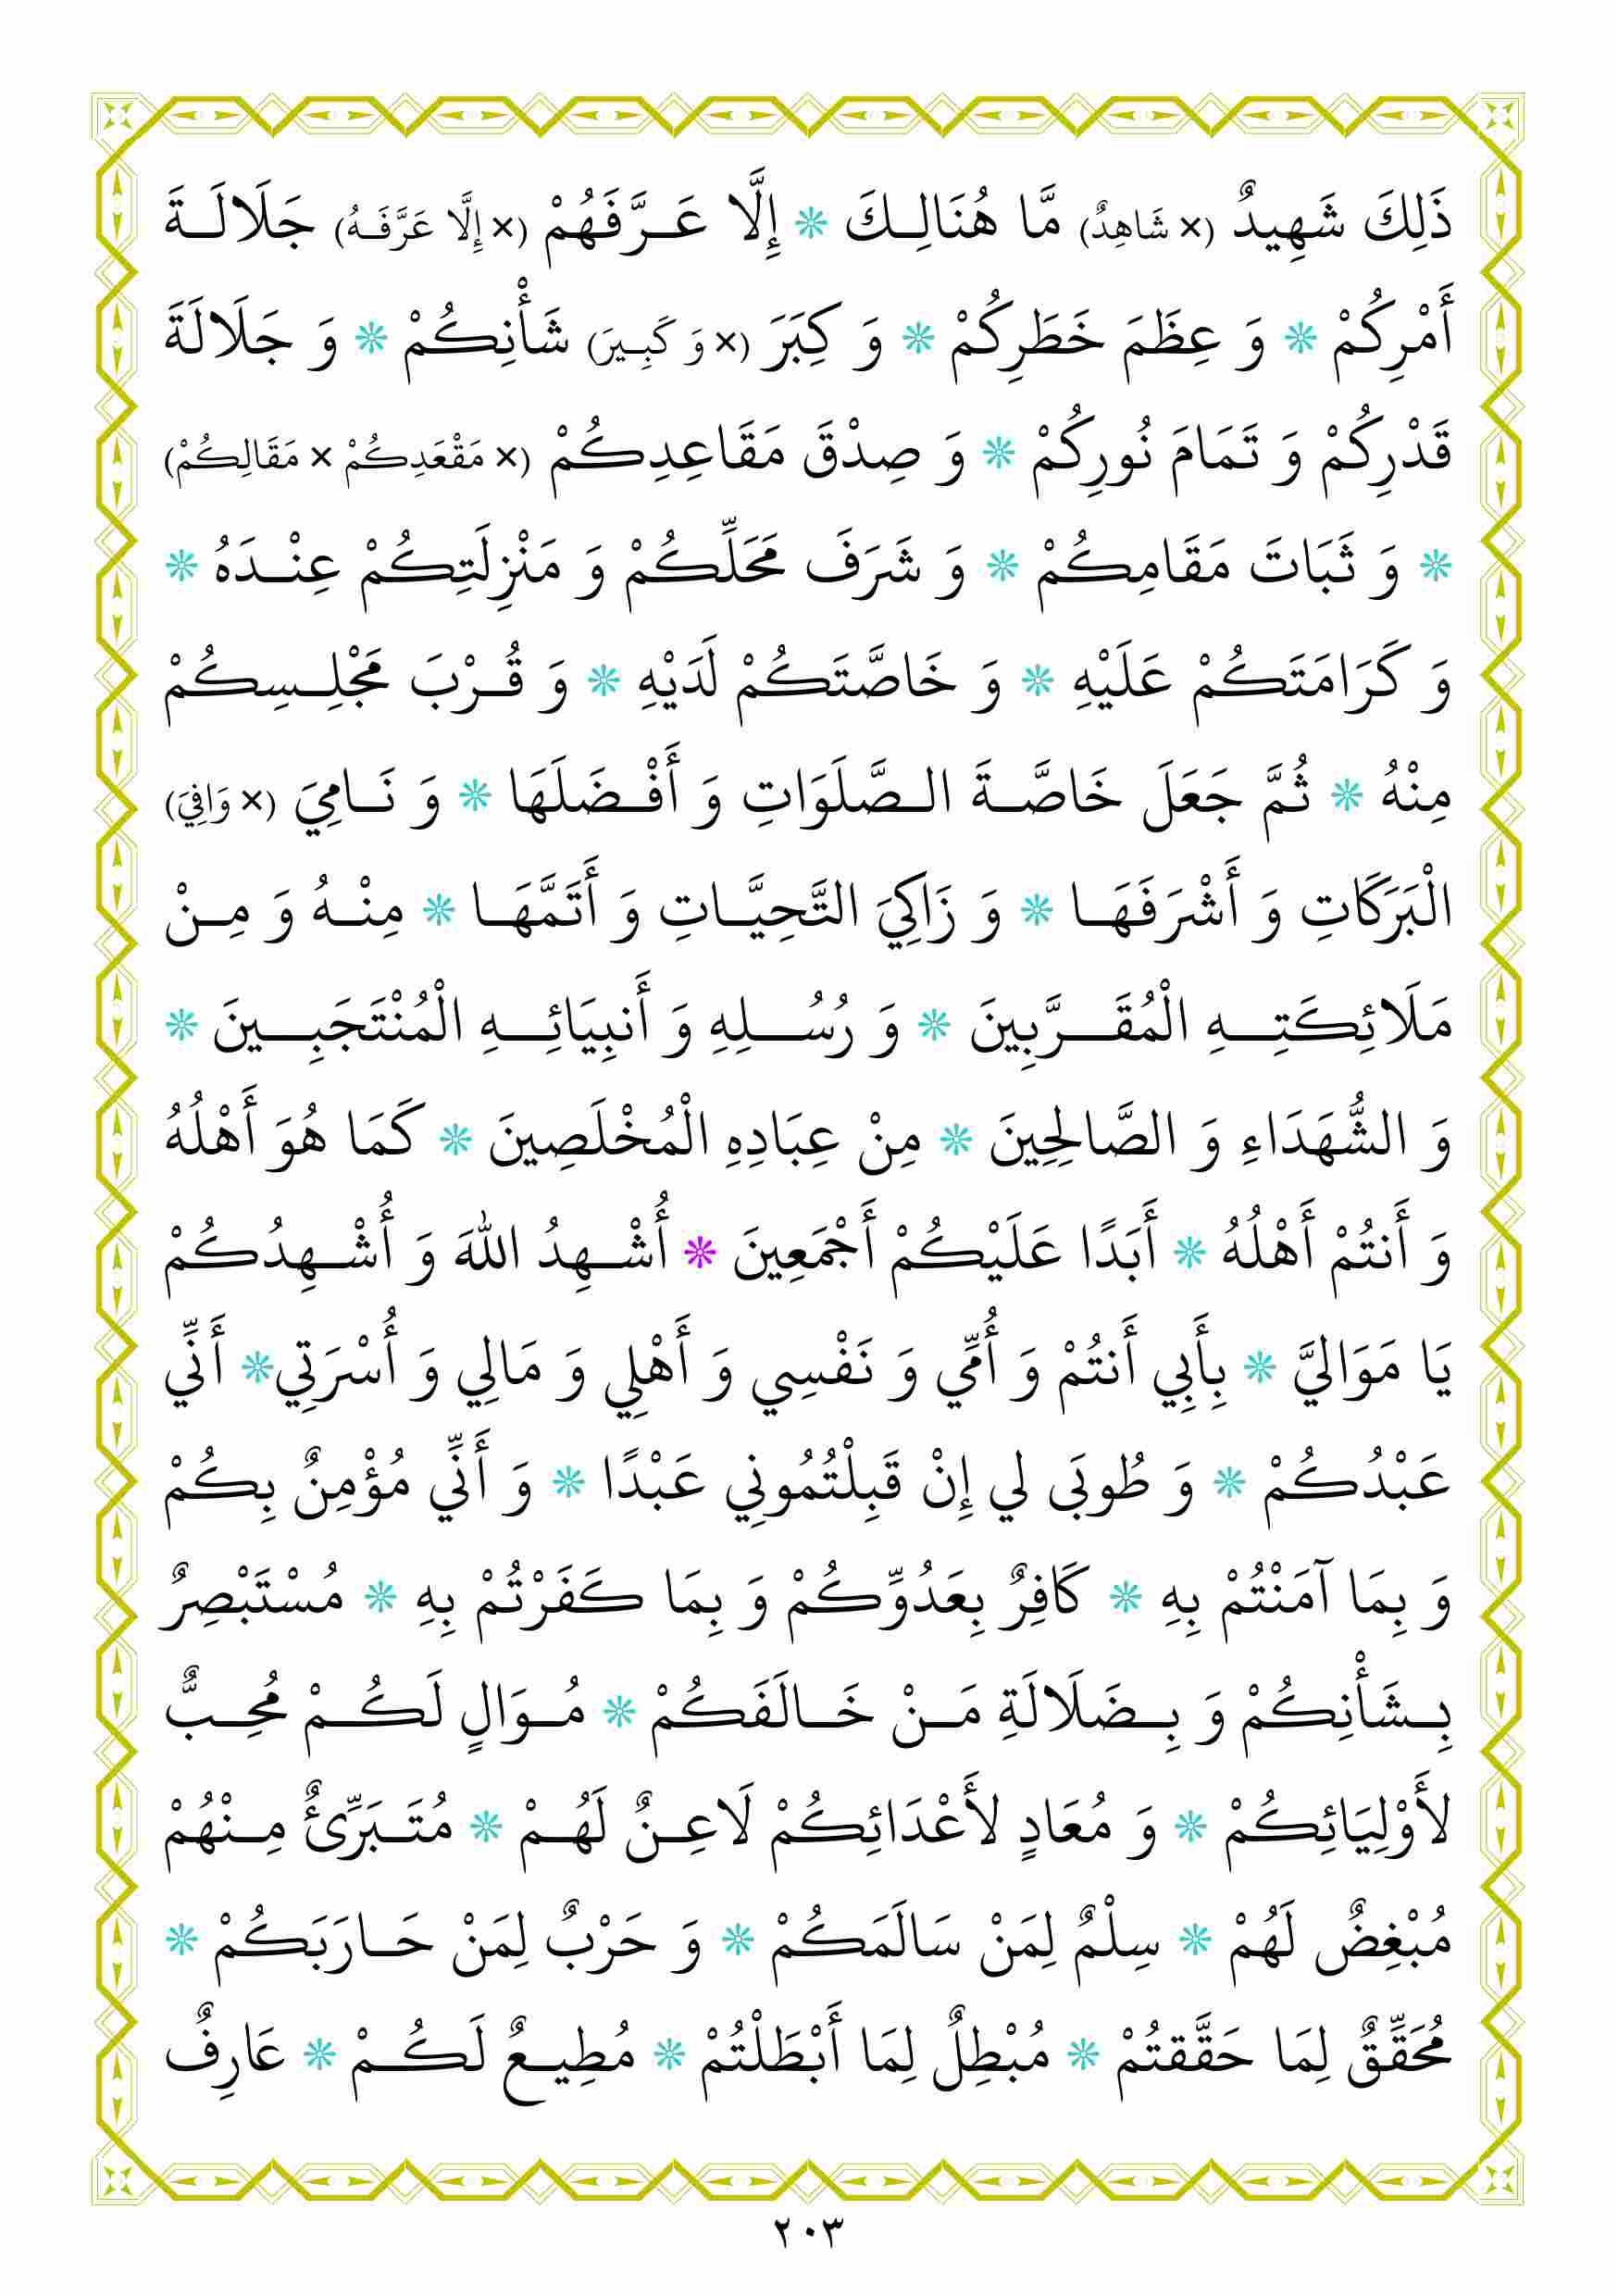 ذَلِكَ شَهِيدٌ (× شَاهِدٌ) مَّا هُنَالِكَ ❊ إِلَّا عَرَّفَهُمْ (× إِلَّا عَرَّفَهُ) جَلَالَةَ
أَمْرِكُمْ ❊ وَ عِظَمَ خَطَرِكُمْ ❊ وَ كِبَرَ (× وَ كَبِيرَ) شَأْنِكُمْ ❊ وَ جَلَالَةَ
قَدْرِكُمْ وَ تَمَامَ نُورِكُمْ ❊ وَ صِدْقَ مَقَاعِدِكُمْ (× مَقْعَدِكُمْ × مَقَالِكُمْ)
❊ وَ ثَبَاتَ مَقَامِكُمْ ❊ وَ شَرَفَ مَحَلِّكُمْ وَ مَنْزِلَتِكُمْ عِنْدَهُ ❊
وَ كَرَامَتَكُمْ عَلَيْهِ ❊ وَ خَاصَّتَكُمْ لَدَيْهِ ❊ وَ قُرْبَ مَجْلِسِكُمْ
مِنْهُ ❊ ثُمَّ جَعَلَ خَاصَّةَ الصَّلَوَاتِ وَ أَفْضَلَهَا ❊ وَ نَامِيَ (× وَافِيَ)
الْبَرَكَاتِ وَ أَشْرَفَهَا ❊ وَ زَاكِيَ التَّحِيَّاتِ وَ أَتَمَّهَا ❊ مِنْهُ وَ مِنْ
مَلَائِكَتِهِ الْمُقَرَّبِينَ ❊ وَ رُسُلِهِ وَ أَنبِيَائِهِ الْمُنْتَجَبِينَ ❊
وَ الشُّهَدَاءِ وَ الصَّالِحِينَ ❊ مِنْ عِبَادِهِ الْمُخْلَصِينَ ❊ كَمَا هُوَ أَهْلُهُ
وَ أَنتُمْ أَهْلُهُ ❊ أَبَدًا عَلَيْكُمْ أَجْمَعِينَ ❊ أُشْهِدُ اللهَ وَ أُشْهِدُكُمْ
يَا مَوَالِيَّ ❊ بِأَبِي أَنتُمْ وَ أُمِّي وَ نَفْسِي وَ أَهْلِي وَ مَالِي وَ أُسْرَتِي❊ أَنِّي
عَبْدُكُمْ ❊ وَ طُوبَى لي إِنْ قَبِلْتُمُونِي عَبْدًا ❊ وَ أَنِّي مُؤْمِنٌ بِكُمْ
وَ بِمَا آمَنْتُمْ بِهِ ❊ كَافِرٌ بِعَدُوِّكُمْ وَ بِمَا كَفَرْتُمْ بِهِ ❊ مُسْتَبْصِرٌ
بِشَأْنِكُمْ وَ بِضَلَالَةِ مَنْ خَالَفَكُمْ ❊ مُوَالٍ لَكُمْ مُحِبٌّ
لأَوْلِيَائِكُمْ ❊ وَ مُعَادٍ لأَعْدَائِكُمْ لَاعِنٌ لَهُمْ ❊ مُتَبَرِّئٌ مِنْهُمْ
مُبْغِضٌ لَهُمْ ❊ سِلْمٌ لِمَنْ سَالَمَكُمْ ❊ وَ حَرْبٌ لِمَنْ حَارَبَكُمْ ❊
مُحَقِّقٌ لِمَا حَقَّقتُمْ ❊ مُبْطِلٌ لِمَا أَبْطَلْتُمْ ❊ مُطِيعٌ لَكُمْ ❊ عَارِفٌ
٢٠٣